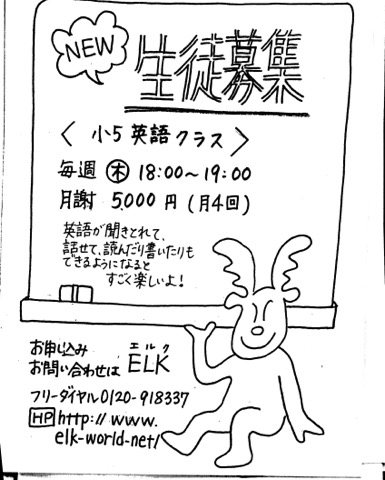 NEW
生徒募集
〈 小5 英語クラス 〉
毎週 ㊍ 18:00〜19:00
月謝 5,000円 (月4回)
英語が聞きとれて、
話せて、読んだり書いたりも
できるようになると
すごく楽しいよ!
お申し込み
エルク
お問い合わせは ELK
フリーダイヤル 0120-918337
HP http://www.
elk-world-net/